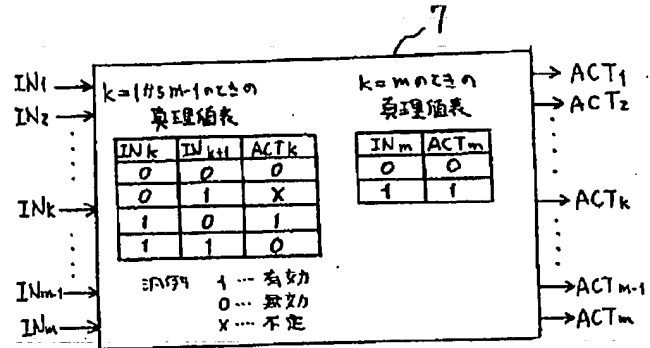 7
IN1
IN2
INk
INm-1
INm
k=1からm-1のときの
真理値表
INk INk+1 ACTk
0 0 0
0 1 X
1 0 1
1 1 0
凡例 1…有効
0…無効
X…不定
k=mのときの
真理値表
INm ACTm
0 0
1 1
ACT1
ACT2
ACTk
ACTm-1
ACTm